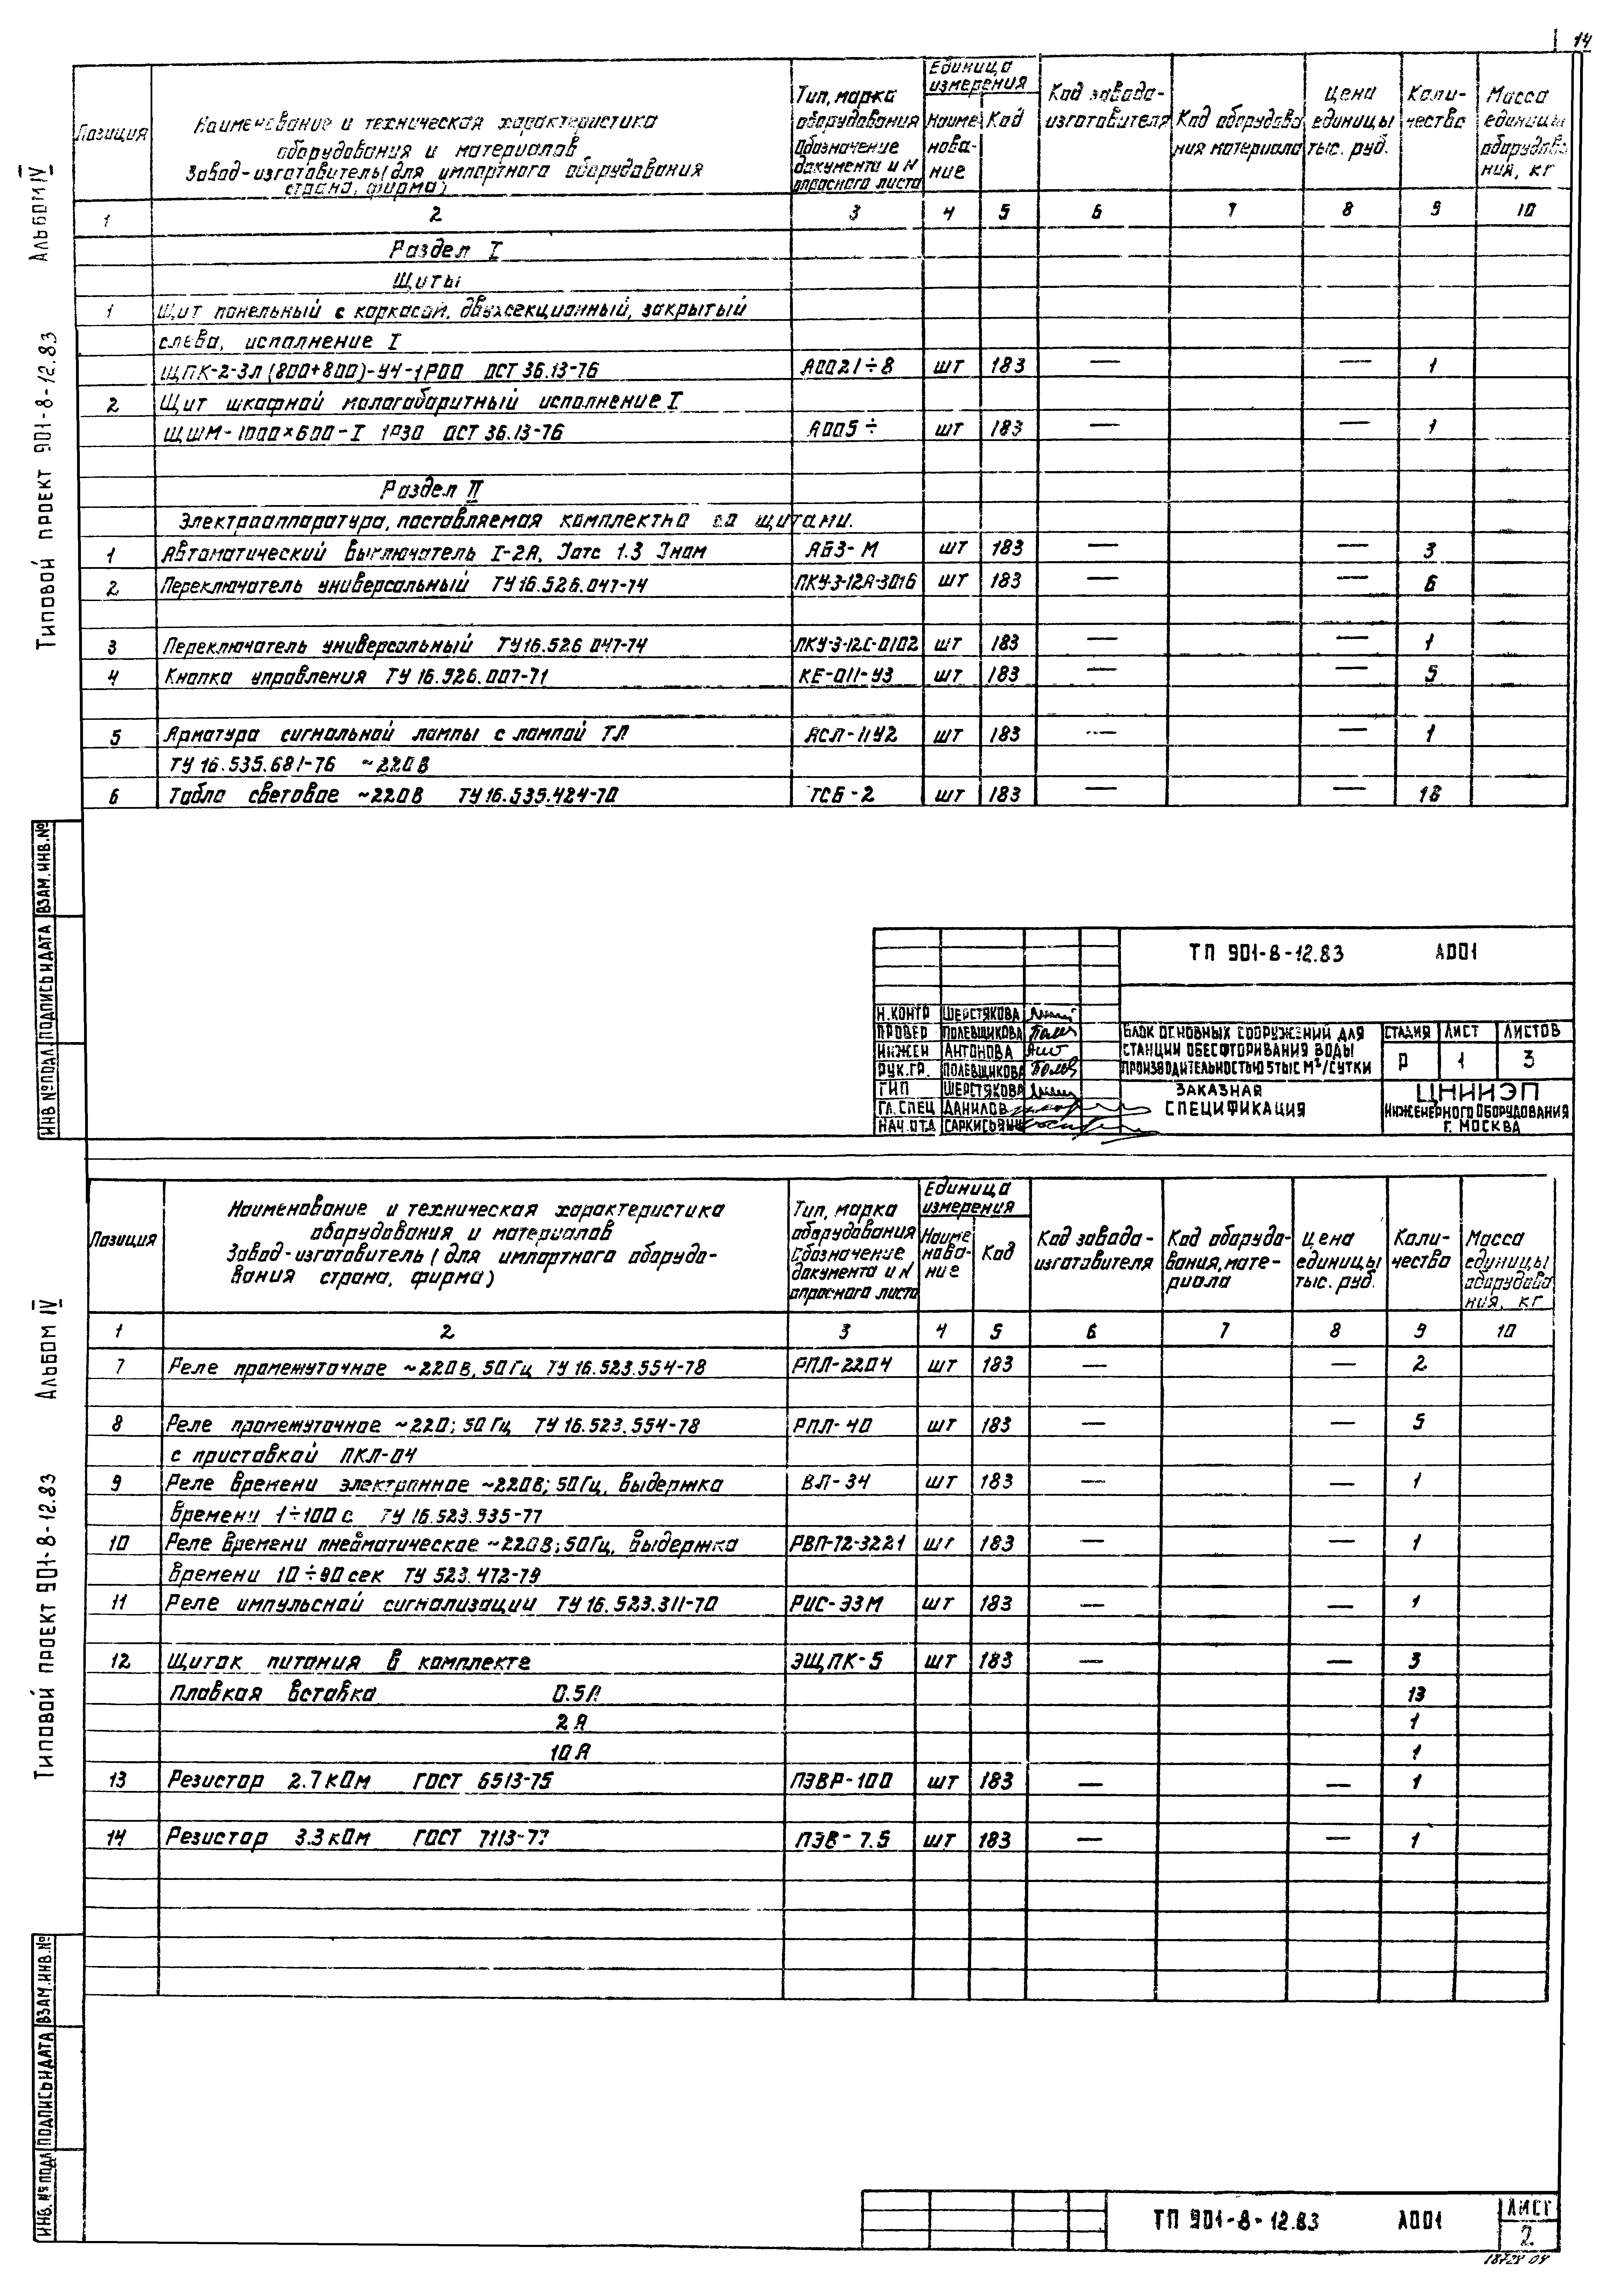 14
Альбом IV
Типовой проект 901-8-12.83
Позиция
Наименование и техническая характеристика
оборудования и материалов
Завод-изготовитель (для импортного оборудования
страна, фирма)
Тип, марка
оборудования
Обозначение
документа и N
опросного листа
Единица
измерения
Наиме
нова-
ние
Код
Код завода-
изготовителя
Код оборудова
ния материала
Цена
единицы
тыс. руб.
Коли-
чество
Масса
единицы
оборудова
ния, кг
1 2 3 4 5 6 7 8 9 10
Раздел I
Щиты
1 Щит панельный с каркасом, двухсекционный, закрытый
слева, исполнение I
ЩПК-2-3л (800+800)-УЧ-1Р00 ОСТ 36.13-76 А0021÷8 шт 183 — — 1
2 Щит шкафной малогабаритный исполнение I
ЩШМ-1000×600-I 1Р30 ОСТ 36.13-76 А005÷ шт 183 — — 1
Раздел II
Электроаппаратура, поставляемая комплектно со щитами.
1 Автоматический выключатель I-2А, Jотс 1.3 Jном АБ3-М шт 183 — — 3
2 Переключатель универсальный ТУ16.526.047-74 ПКУ3-12А-3016 шт 183 — — 6
3 Переключатель универсальный ТУ16.526 047-74 ПКУ-3-12С-0102 шт 183 — — 1
4 Кнопка управления ТУ 16.526.007-71 КЕ-011-У3 шт 183 — — 5
5 Арматура сигнальной лампы с лампой ТЛ АСЛ-11У2 шт 183 — — 1
ТУ 16.535.681-76 ~220В
6 Табло световое ~220В ТУ16.535.424-70 ТСБ-2 шт 183 — — 18
ИНВ №ПОДЛ ПОДПИСЬ И ДАТА ВЗАМ.ИНВ.№
ТП 901-8-12.83 А001
Н.КОНТР ШЕРСТЯКОВА
ПРОВЕР ПОЛЕВЩИКОВА
ИНЖЕН АНТОНОВА
РУК.ГР. ПОЛЕВЩИКОВА
ГИП ШЕРСТЯКОВА
ГЛ.СПЕЦ ДАНИЛОВ
НАЧ.ОТД САРКИСЬЯНЦ
БЛОК ОСНОВНЫХ СООРУЖЕНИЙ ДЛЯ
СТАНЦИИ ОБЕСФТОРИВАНИЯ ВОДЫ
ПРОИЗВОДИТЕЛЬНОСТЬЮ 5ТЫС М³/СУТКИ
СТАДИЯ ЛИСТ ЛИСТОВ
Р 1 3
ЗАКАЗНАЯ
СПЕЦИФИКАЦИЯ
ЦНИИЭП
ИНЖЕНЕРНОГО ОБОРУДОВАНИЯ
Г. МОСКВА
Альбом IV
Типовой проект 901-8-12.83
Позиция
Наименование и техническая характеристика
оборудования и материалов
Завод-изготовитель (для импортного оборудо-
вания страна, фирма)
Тип, марка
оборудования
Обозначение
документа и N
опросного листа
Единица
измерения
Наиме
нова-
ние
Код
Код завода-
изготовителя
Код оборудо-
вания, мате-
риала
Цена
единицы
тыс. руб.
Коли-
чество
Масса
единицы
оборудова
ния, кг
1 2 3 4 5 6 7 8 9 10
7 Реле промежуточное ~220В, 50Гц ТУ 16.523.554-78 РПЛ-2204 шт 183 — — 2
8 Реле промежуточное ~220; 50Гц ТУ 16.523.554-78 РПЛ-40 шт 183 — — 5
с приставкой ПКЛ-04
9 Реле времени электронное ~220В; 50Гц, выдержка ВЛ-34 шт 183 — — 1
времени 1÷100 с ТУ 16.523.535-77
10 Реле времени пневматическое ~220В; 50Гц, выдержка РВП-72-3221 шт 183 — — 1
времени 10÷90 сек ТУ 523.472-79
11 Реле импульсной сигнализации ТУ 16.523.311-70 РИС-Э3М шт 183 — — 1
12 Щиток питания в комплекте ЭЩПК-5 шт 183 — — 3
Плавкая вставка 0.5А 13
2А 1
10А 1
13 Резистор 2.7 кОм ГОСТ 6513-75 ПЭВР-100 шт 183 — — 1
14 Резистор 3.3 кОм ГОСТ 7113-77 ПЭВ-7.5 шт 183 — — 1
ИНВ. №ПОДЛ ПОДПИСЬ И ДАТА ВЗАМ.ИНВ.№
ТП 901-8-12.83 А001
ЛИСТ
2